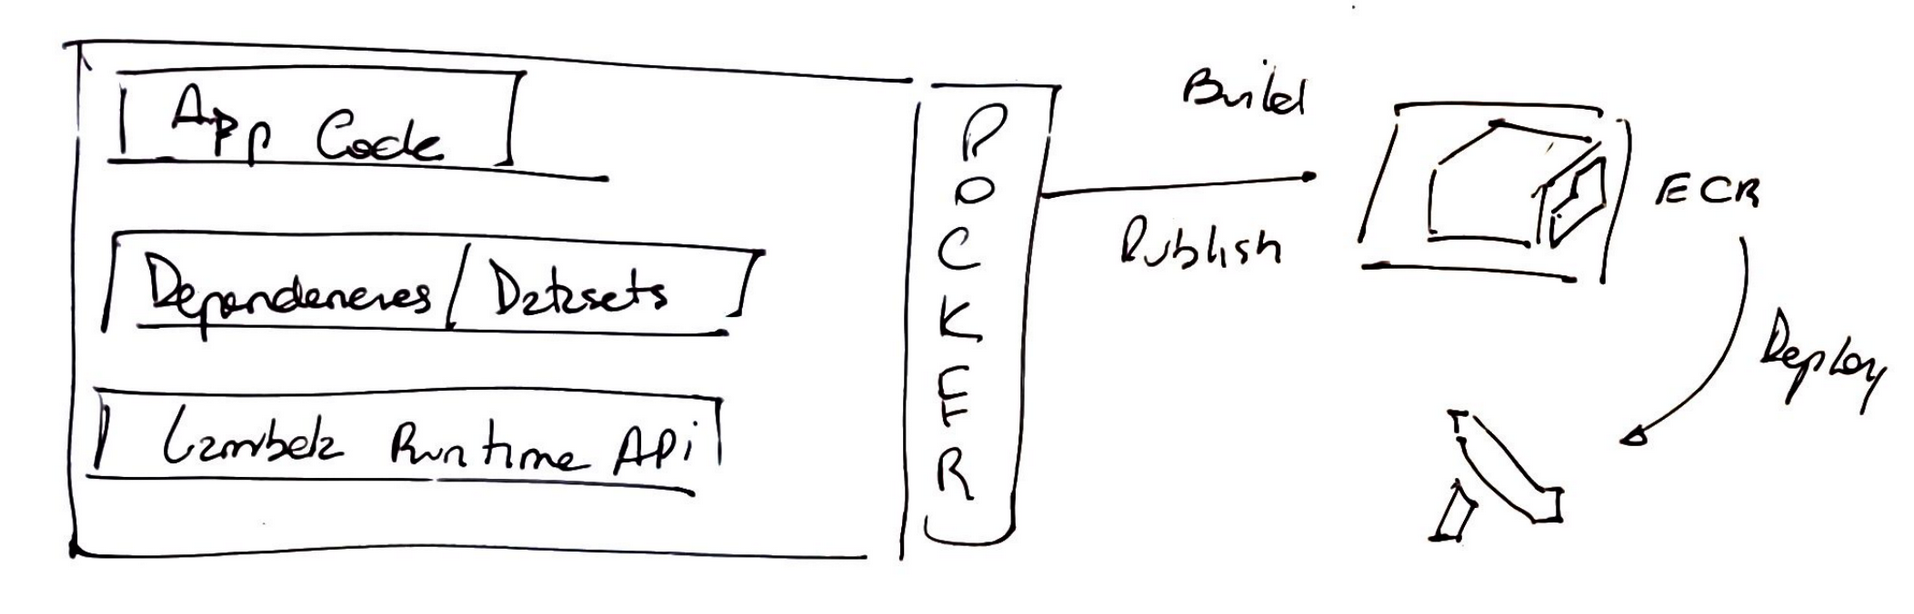 App Code
Dependencies / Datasets
Lambda Runtime API
DOCKER
Build
Publish
ECR
Deploy